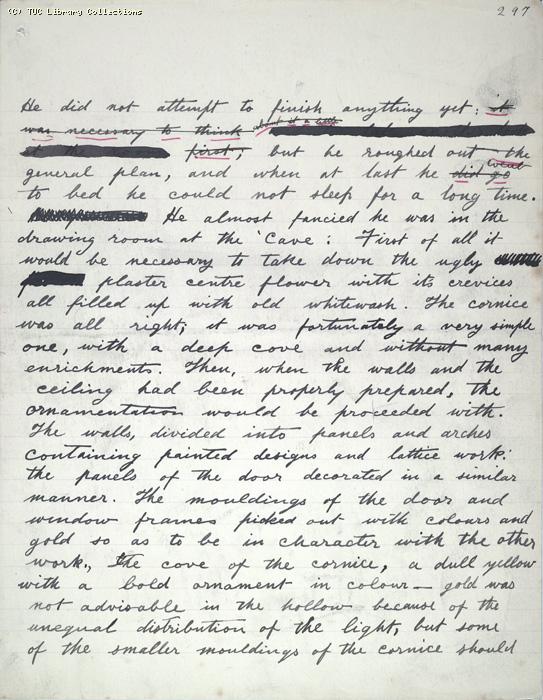 (C) TUC Library Collections
297
He did not attempt to finish anything yet: it
was necessary to think about it a little
first; but he roughed out the
general plan, and when at last he did go went
to bed he could not sleep for a long time.
He almost fancied he was in the
drawing room at the 'Cave: First of all it
would be necessary to take down the ugly
plaster centre flower with its crevices
all filled up with old whitewash. The cornice
was all right; it was fortunately a very simple
one, with a deep cove and without many
enrichments. Then, when the walls and the
ceiling had been properly prepared, the
ornamentation would be proceeded with.
The walls, divided into panels and arches
containing painted designs and lattice work:
the panels of the door decorated in a similar
manner. The mouldings of the door and
window frames picked out with colours and
gold so as to be in character with the other
work, the cove of the cornice, a dull yellow
with a bold ornament in colour — gold was
not advisable in the hollow because of the
unequal distribution of the light, but some
of the smaller mouldings of the cornice should